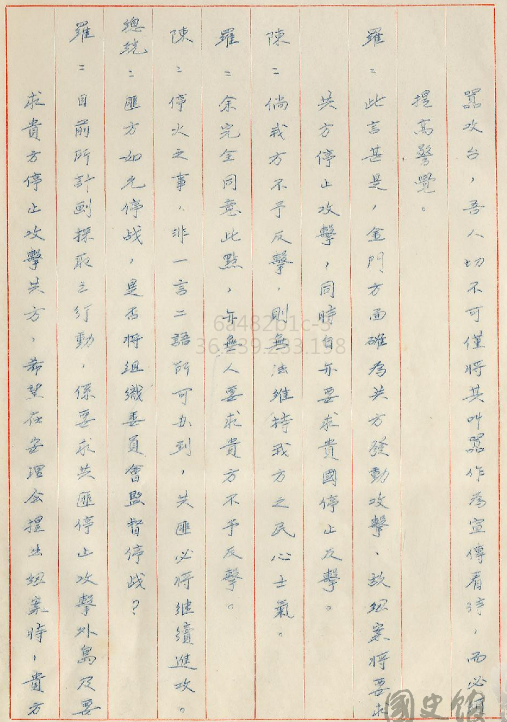 囂攻台，吾人切不可僅將其叫囂作為宣傳看待，而必須
提高警覺。
羅：此言甚是，金門方面確為共方發動攻擊、故紐案將要求
共方停止攻擊，同時自亦要求貴國停止反擊。
陳：倘我方不予反擊，則無法維持我方之民心士氣。
羅：余完全同意此點，亦無人要求貴方不予反擊。
陳：停火之事，非一言二語所可办到，共匪必將继續進攻。
總統：匪方如允停战，是否將組織委員會監督停战？
羅：目前所計劃採取之行動，係要求共匪停止攻擊外島及要
求貴方停止攻擊共方，希望在安理会提出紐案時，貴方
6a482b1c-5
36.239.233.198
國史館